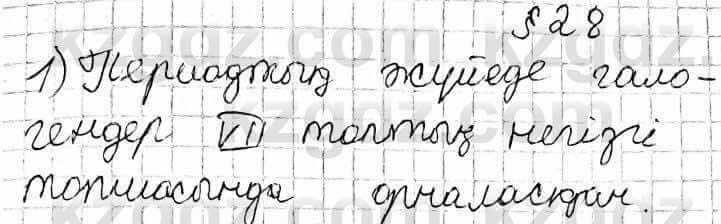 §28
1) Периодтың жүйеде гало-
гендер VII топтың негізгі
топшасында орналасқан.